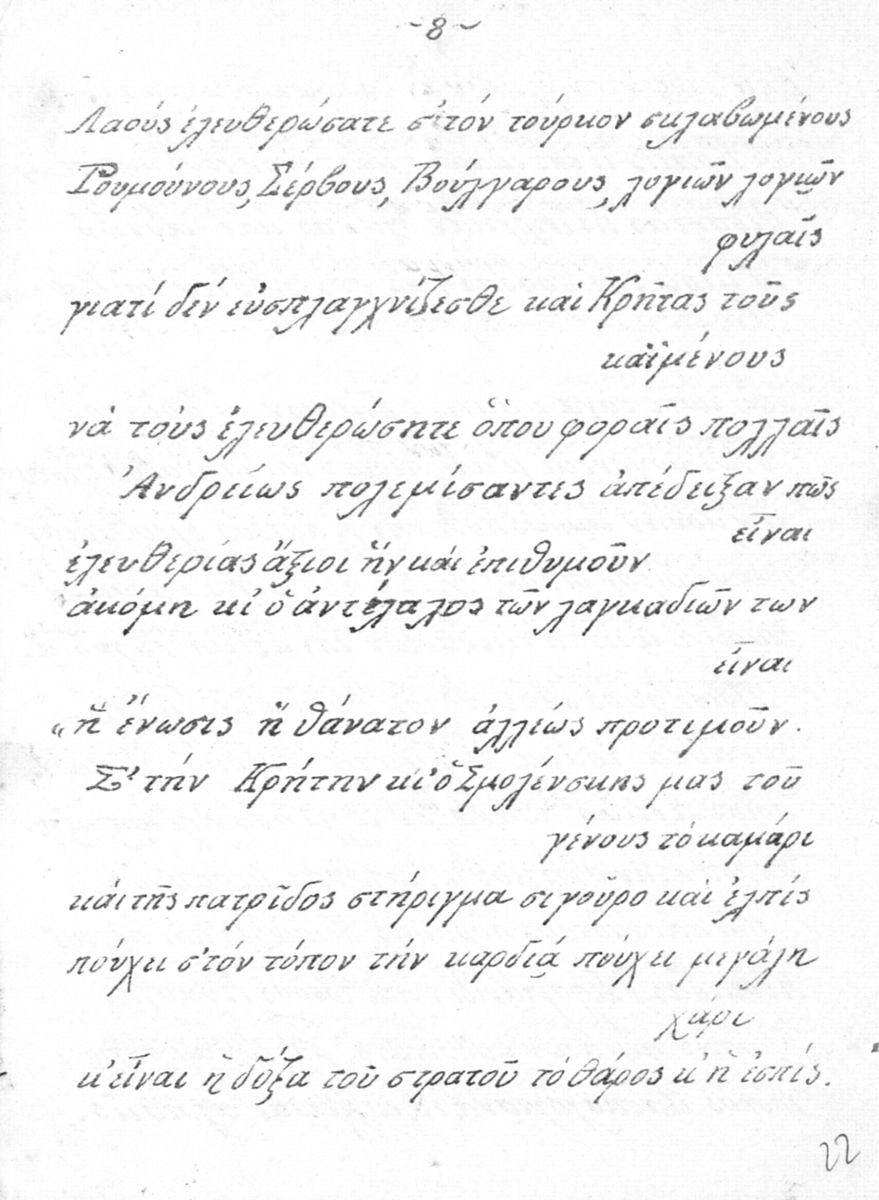 ~8~
Λαούς ἐλευθερώσατε σ'τόν τούρκον σκλαβωμένους
Ρουμούνους, Σέρβους, Βούλγαρους, λογιῶν λογιῶν
φυλαῖς
γιατί δέν εὐσπλαγχνίζεσθε καί Κρῆτας τοῦς
καϊμένους
νά τούς ἐλευθερώσητε ὅπου φοραῖς πολλαῖς
Ἀνδρείως πολεμίσαντες ἀπέδειξαν πῶς
εἶναι
ἐλευθερίας ἄξιοι ἥν καί ἐπιθυμοῦν
ἀκόμη κι ὅ ἀντίλαλος τῶν λαγκαδιῶν των
εἶναι
„ἤ ἕνωσις ἤ θάνατον ἀλλέως προτιμοῦν.
Σ' τήν Κρήτην κι' ὅ Σμολένσκης μας τοῦ
γένους τό καμάρι
καί τῆς πατρῖδος στήριγμα σιγοῦρο καί ἐλπίς
πούχει σ'τόν τόπον τήν καρδιά πούχει μεγάλη
χάρι
κ' εἶναι ἤ δόξα τοῦ στρατοῦ τό θάρος κ' ἤ ἐσπίς.
22